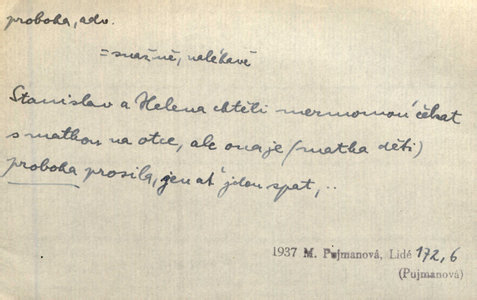 proboha, adv.
= snažně, naléhavě
Stanislav a Helena chtěli mermomocí čekat
s matkou na otce, ale ona je (matka děti)
proboha prosila, jen ať jdou spat, ..
1937 M. Pujmanová, Lidé 172, 6
(Pujmanová)